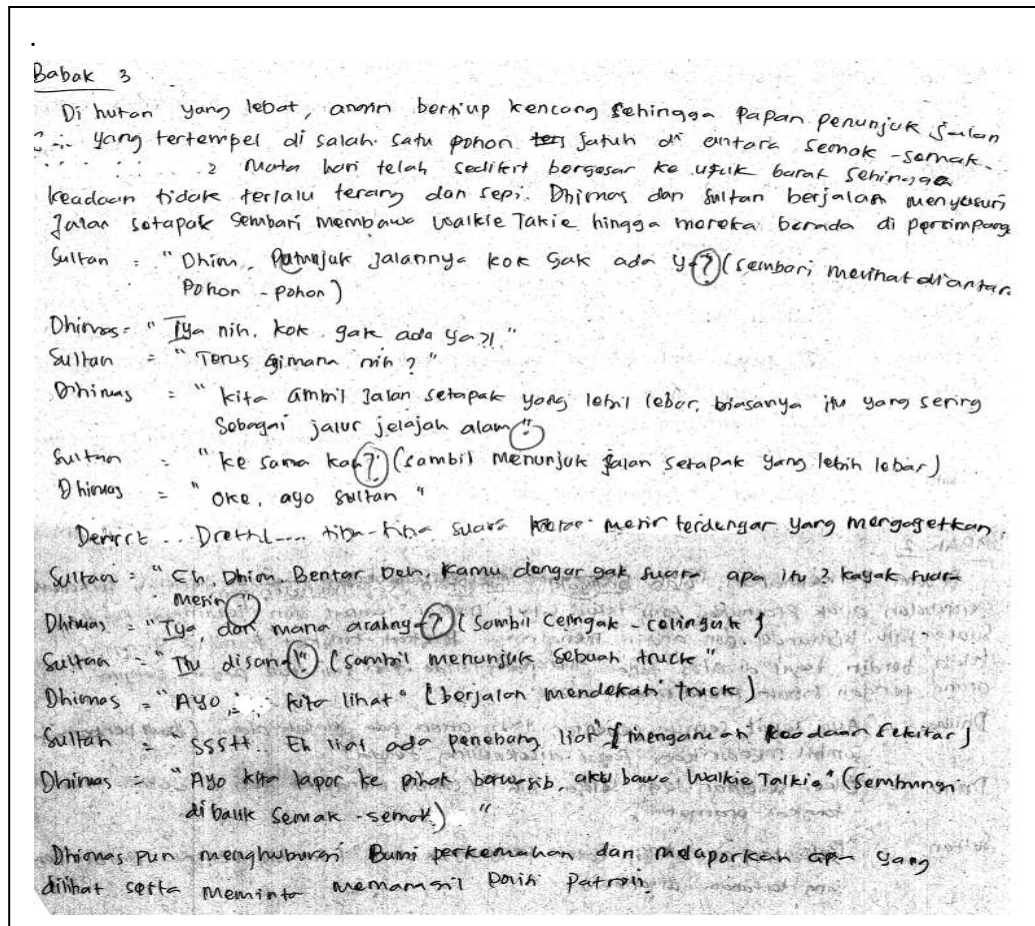 Babak 3
Di hutan yang lebat, angin bertiup kencang sehingga papan penunjuk jalan
yang tertempel di salah satu pohon jatuh di antara semak-semak.
Mata hari telah sedikit bergesar ke ufuk barat sehingga
keadaan tidak terlalu terang dan sepi. Dhimas dan Sultan berjalan menyusuri
Jalan setapak sembari membawa walkie Takie hingga mereka berada di persimpang
Sultan : "Dhim, Petunjuk jalannya kok gak ada ya?" (sembari melihat diantar
Pohon - pohon)
Dhimas = "Iya nih. kok gak ada ya?!."
Sultan = "Terus gimana nih?"
Dhimas = "kita ambil jalan setapak yang lebih lebar, biasanya itu yang sering
Sebagai jalur jelajah alam."
Sultan = "ke sana kah?" (sambil menunjuk jalan setapak yang lebih lebar)
Dhimas = "Oke, ayo Sultan"
tiba-tiba suara mesin terdengar yang mengagetkan
Sultan = "Eh, Dhim. Bentar Deh. Kamu dengar gak suara apa itu? kayak suara
mesin"
Dhimas = "Iya, dari mana arahnya?" (Sambil celingak-celinguk)
Sultan = "Itu disana!" (sambil menunjuk sebuah truck"
Dhimas = "Ayo, kita lihat" (berjalan mendekati truck)
Sultan = "Ssstt.. Eh liat ada penebang liar" (mengamati keadaan sekitar)
Dhimas = "Ayo kita lapor ke pihak berwajib, aku bawa Walkie Talkie" (Sembunyi
di balik semak-semak.) "
Dhimas pun menghubungi Bumi perkemahan dan melaporkan apa yang
dilihat serta meminta memanggil polisi Patroli.